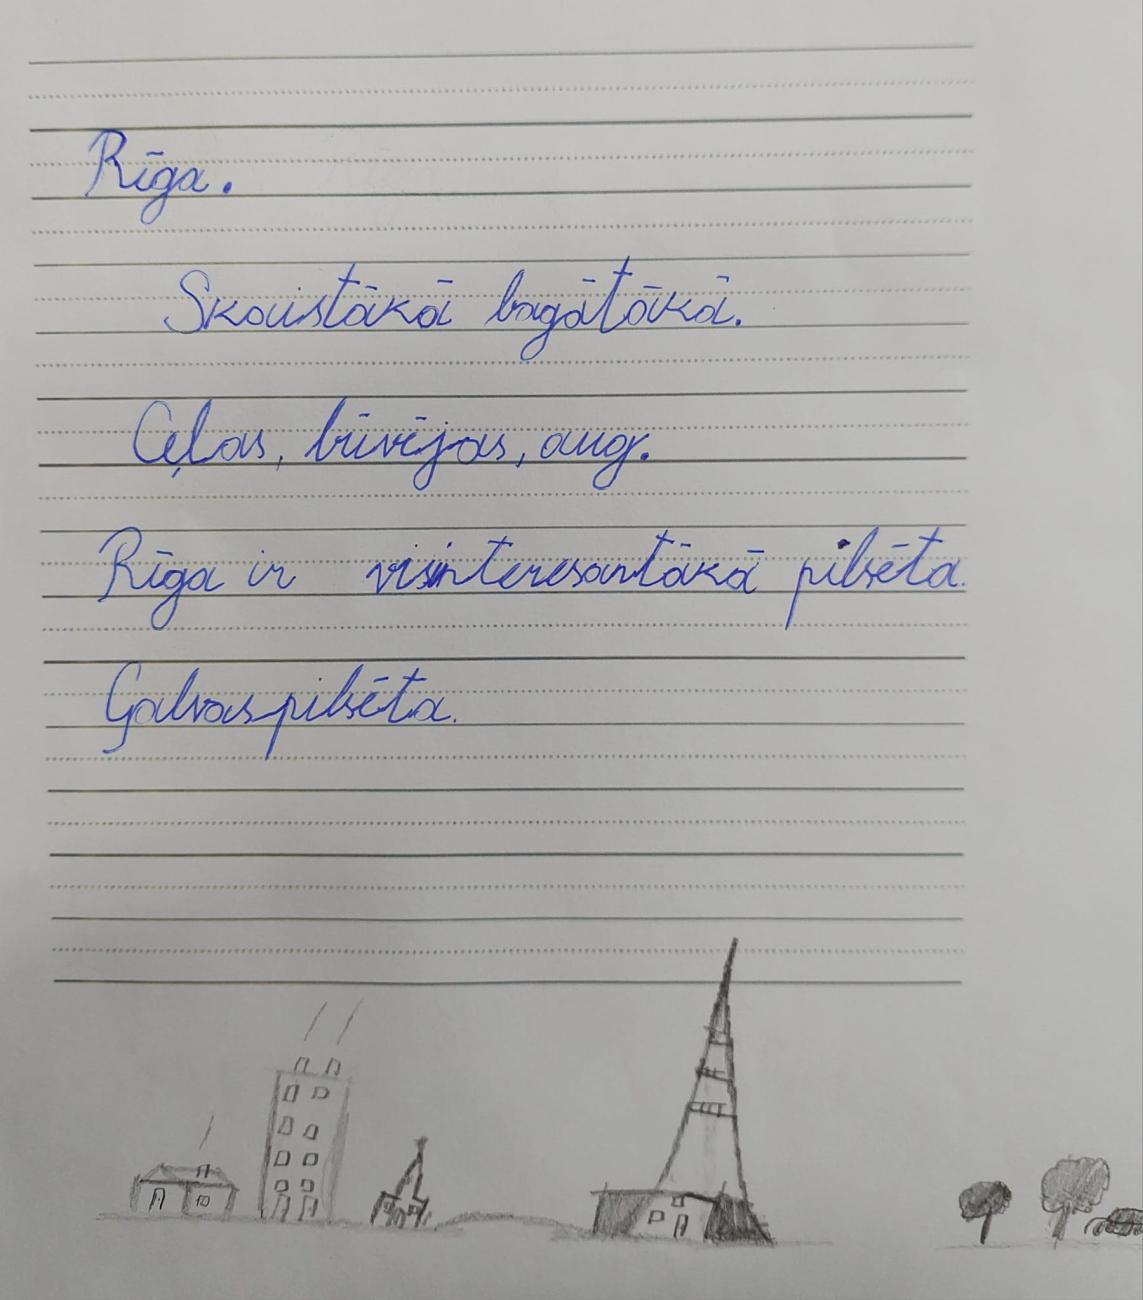 Rīga.
Skaistākā bagātākā.
Ceļas, būvējas, aug.
Rīga ir visinteresantākā pilsēta.
Galvaspilsēta.